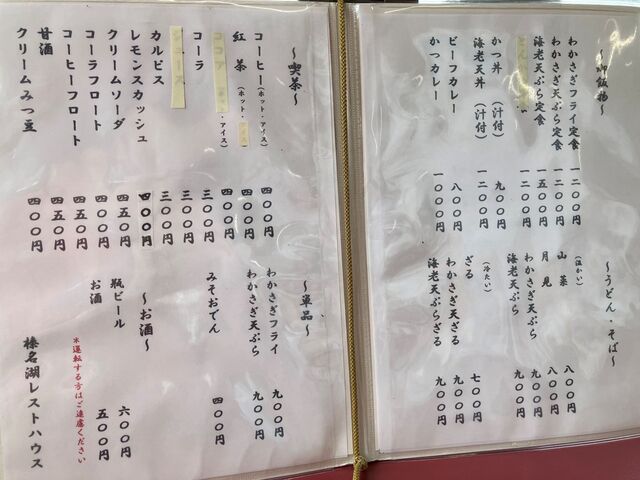 〜御飯物〜
わかさぎフライ定食 一二〇〇円
わかさぎ天ぷら定食 一二〇〇円
海老天ぷら定食 一五〇〇円
一二〇〇円
かつ丼(汁付) 九〇〇円
海老天丼(汁付) 一二〇〇円
ビーフカレー 八〇〇円
かつカレー 一〇〇〇円
〜うどん・そば〜
(温かい)
山菜 八〇〇円
月見 八〇〇円
わかさぎ天ぷら 九〇〇円
海老天ぷら 九〇〇円
(冷たい)
ざる 七〇〇円
わかさぎ天ざる 九〇〇円
海老天ぷらざる 九〇〇円
〜喫茶〜
コーヒー(ホット・アイス) 四〇〇円
紅茶(ホット・アイス) 四〇〇円
ココア(ホット・アイス) 四〇〇円
コーラ 三〇〇円
ジュース 三〇〇円
カルピス 三〇〇円
レモンスカッシュ 四〇〇円
クリームソーダ 四五〇円
コーラフロート 四五〇円
コーヒーフロート 四五〇円
甘酒 四五〇円
クリームみつ豆 四〇〇円
〜単品〜
わかさぎフライ 九〇〇円
わかさぎ天ぷら 九〇〇円
みそおでん 四〇〇円
〜お酒〜
瓶ビール 六〇〇円
お酒 五〇〇円
*運転する方はご遠慮ください
榛名湖レストハウス